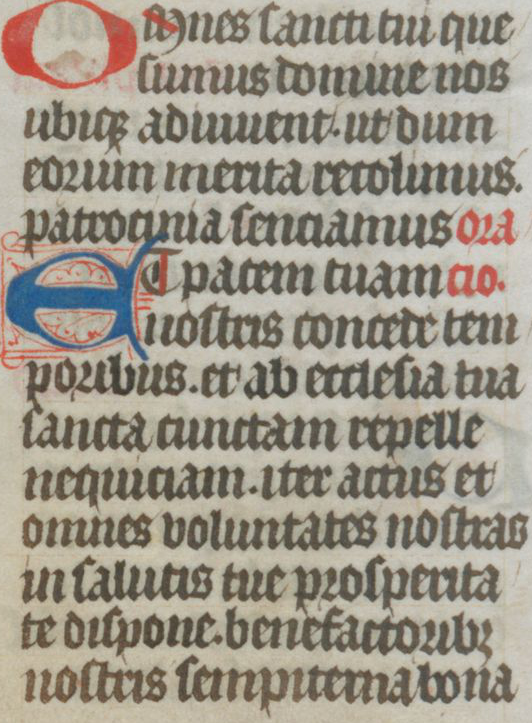 Omnes sancti tui que
sumus domine nos
ubiqꝫ adiuuent. ut dum
eorum merita recolimus.
patrocinia senciamus Ora
Et pacem tuam cio.
nostris concede tem
poribus. et ab ecclesia tua
sancta cunctam repelle
nequiciam. iter actus et
omnes voluntates nostras
in salutis tue prosperita
te dispone. benefactoribꝫ
nostris sempiterna bona